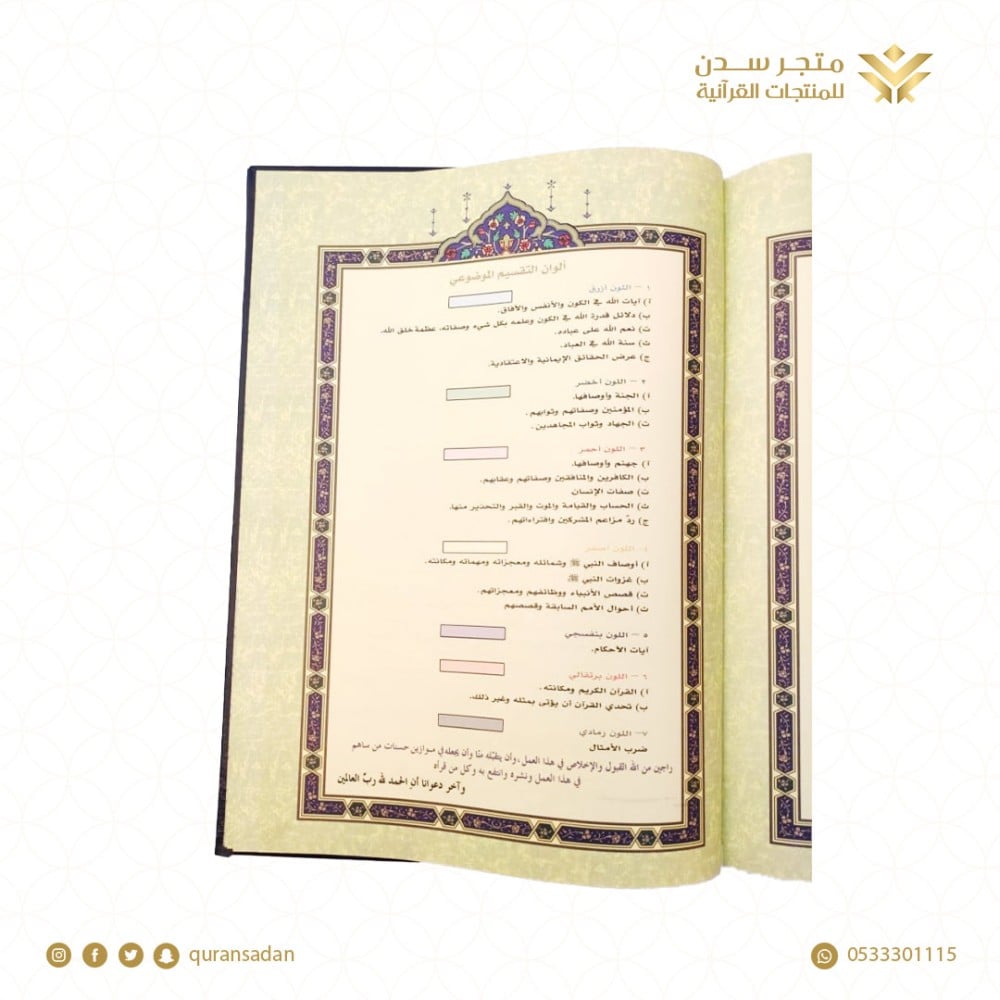 متجر سدن
للمنتجات القرآنية
ألوان التقسيم الموضوعي
١ – اللون ازرق
أ) آيات الله في الكون والأنفس والآفاق.
ب) دلائل قدرة الله في الكون وعلمه بكل شيء وصفاته، عظمة خلق الله.
ت) نعم الله على عباده.
ث) سنة الله في العباد.
ج) عرض الحقائق الإيمانية والاعتقادية.
٢ – اللون أخضر
أ) الجنة وأوصافها.
ب) المؤمنين وصفاتهم وثوابهم.
ت) الجهاد وثواب المجاهدين.
٣ – اللون أحمر
أ) جهنم وأوصافها.
ب) الكافرين والمنافقين وصفاتهم وعقابهم.
ت) صفات الإنسان
ث) الحساب والقيامة والموت والقبر والتحذير منها.
ج) ردّ مزاعم المشركين وافتراءاتهم.
٤ – اللون اصفر
أ) أوصاف النبي ﷺ وشمائله ومعجزاته ومهماته ومكانته.
ب) غزوات النبي ﷺ.
ت) قصص الأنبياء ووظائفهم ومعجزاتهم.
ث) أحوال الأمم السابقة وقصصهم
٥ – اللون بنفسجي
آيات الأحكام.
٦ – اللون برتقالي
أ) القرآن الكريم ومكانته.
ب) تحدي القرآن أن يؤتى بمثله وغير ذلك.
٧– اللون رمادي
ضرب الأمثال
راجين من الله القبول والإخلاص في هذا العمل، وأن يتقبّله منّا وأن يجعله في موازين حسنات من ساهم
في هذا العمل ونشره وانتفع به وكل من قرأه
وآخر دعوانا أن الحمد لله ربّ العالمين
quransadan
0533301115